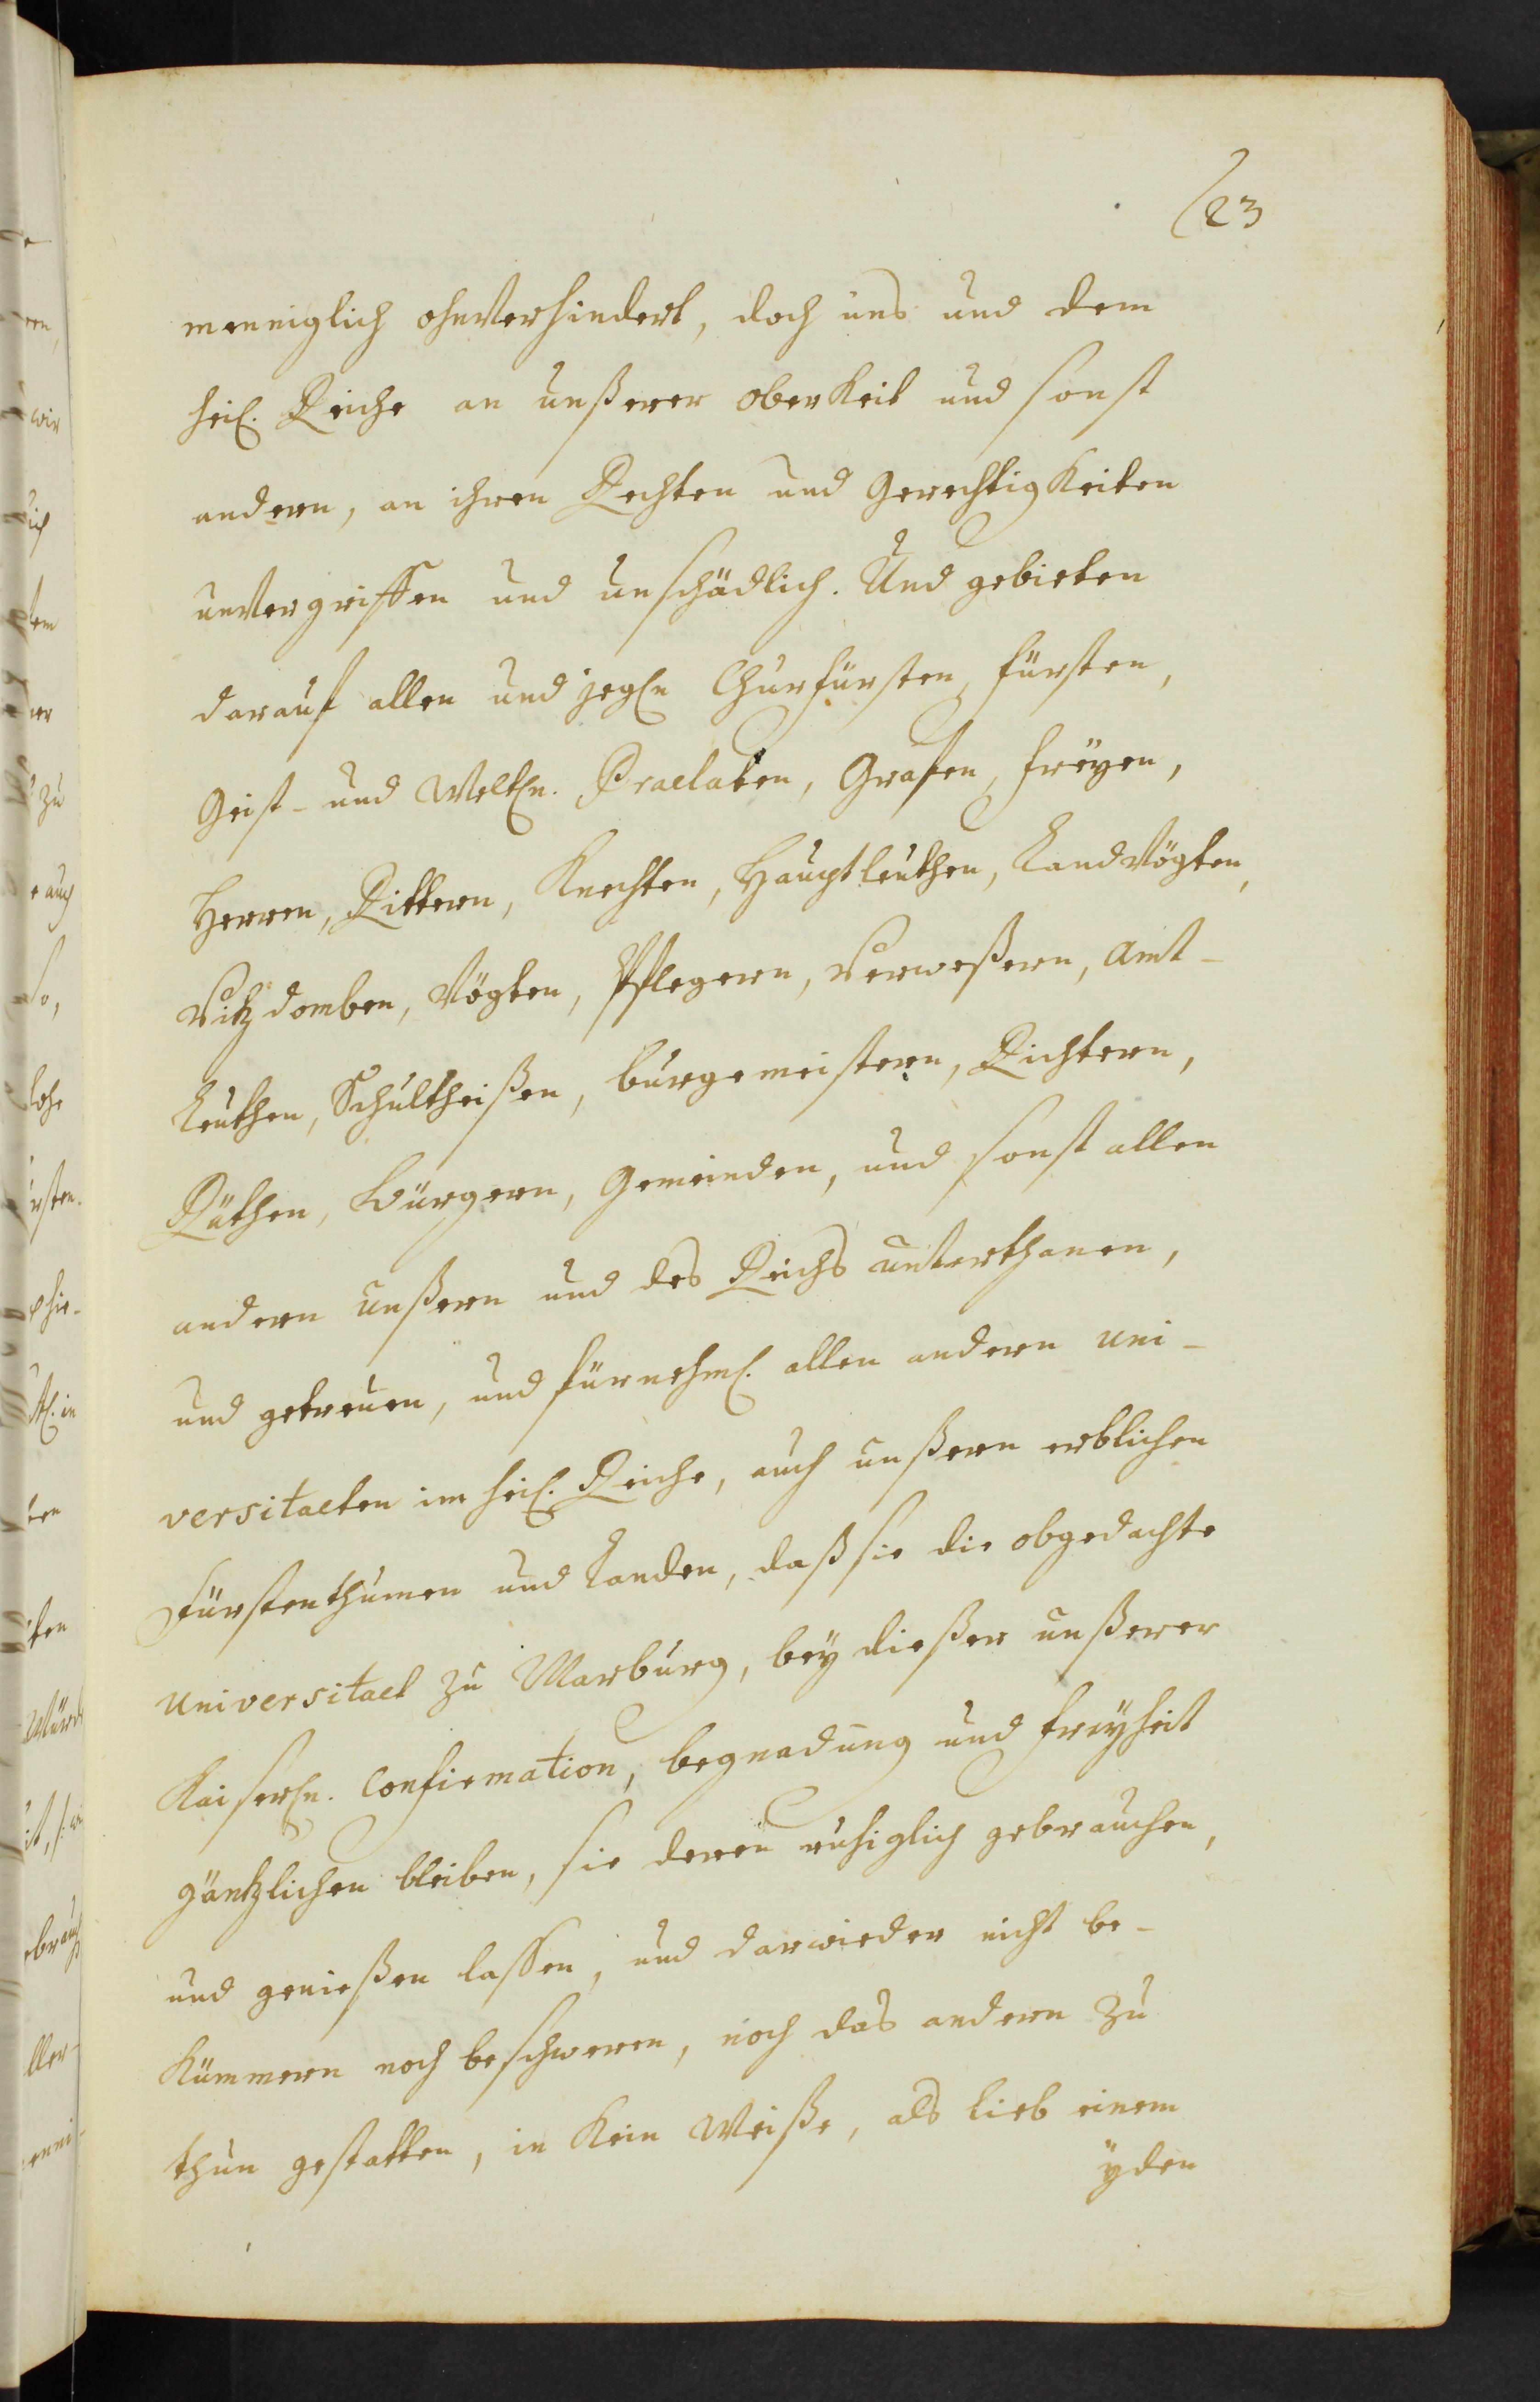 (23
menniglich ohnverhindert, doch uns und dem
heil. Reiche an unßerer oberkeit und sonst
andern, an ihren Rechten und gerechtigkeiten
unvergriffen und unschädlich. Und gebieten
darauf allen und jegln Churfürsten, fürsten,
Geist- und Weltln. Praelaten, Grafen, freyen,
Herren, Rittern, Knechten, Hauptleuthen, Landvögten,
Vitzdomben, Vögten, Pflegern, Verweßern, Amt-
leuthen, Schultheißen, burgemeistern, Richtern,
Räthen, Bürgern, Gemeinden, und sonst allen
andern unßern und des Reichs unterthanen,
und getreuen, und fürnehml. allen andern uni-
versitaeten im heil. Reiche, auch unßern erblichen
Fürstenthumen und Landen, daß sie die obgedachte
universitaet zu Marburg, bey dießer unßerer
Kaiserln. Confirmation, begnadung und freyheit
gäntzlichen bleiben, sie deren ruhiglich gebrauchen,
und genießen laßen, und darwieder nicht be-
kümmern noch beschweren, noch das andern zu
thun gestatten, in kein Weiße, als lieb einem
ÿden